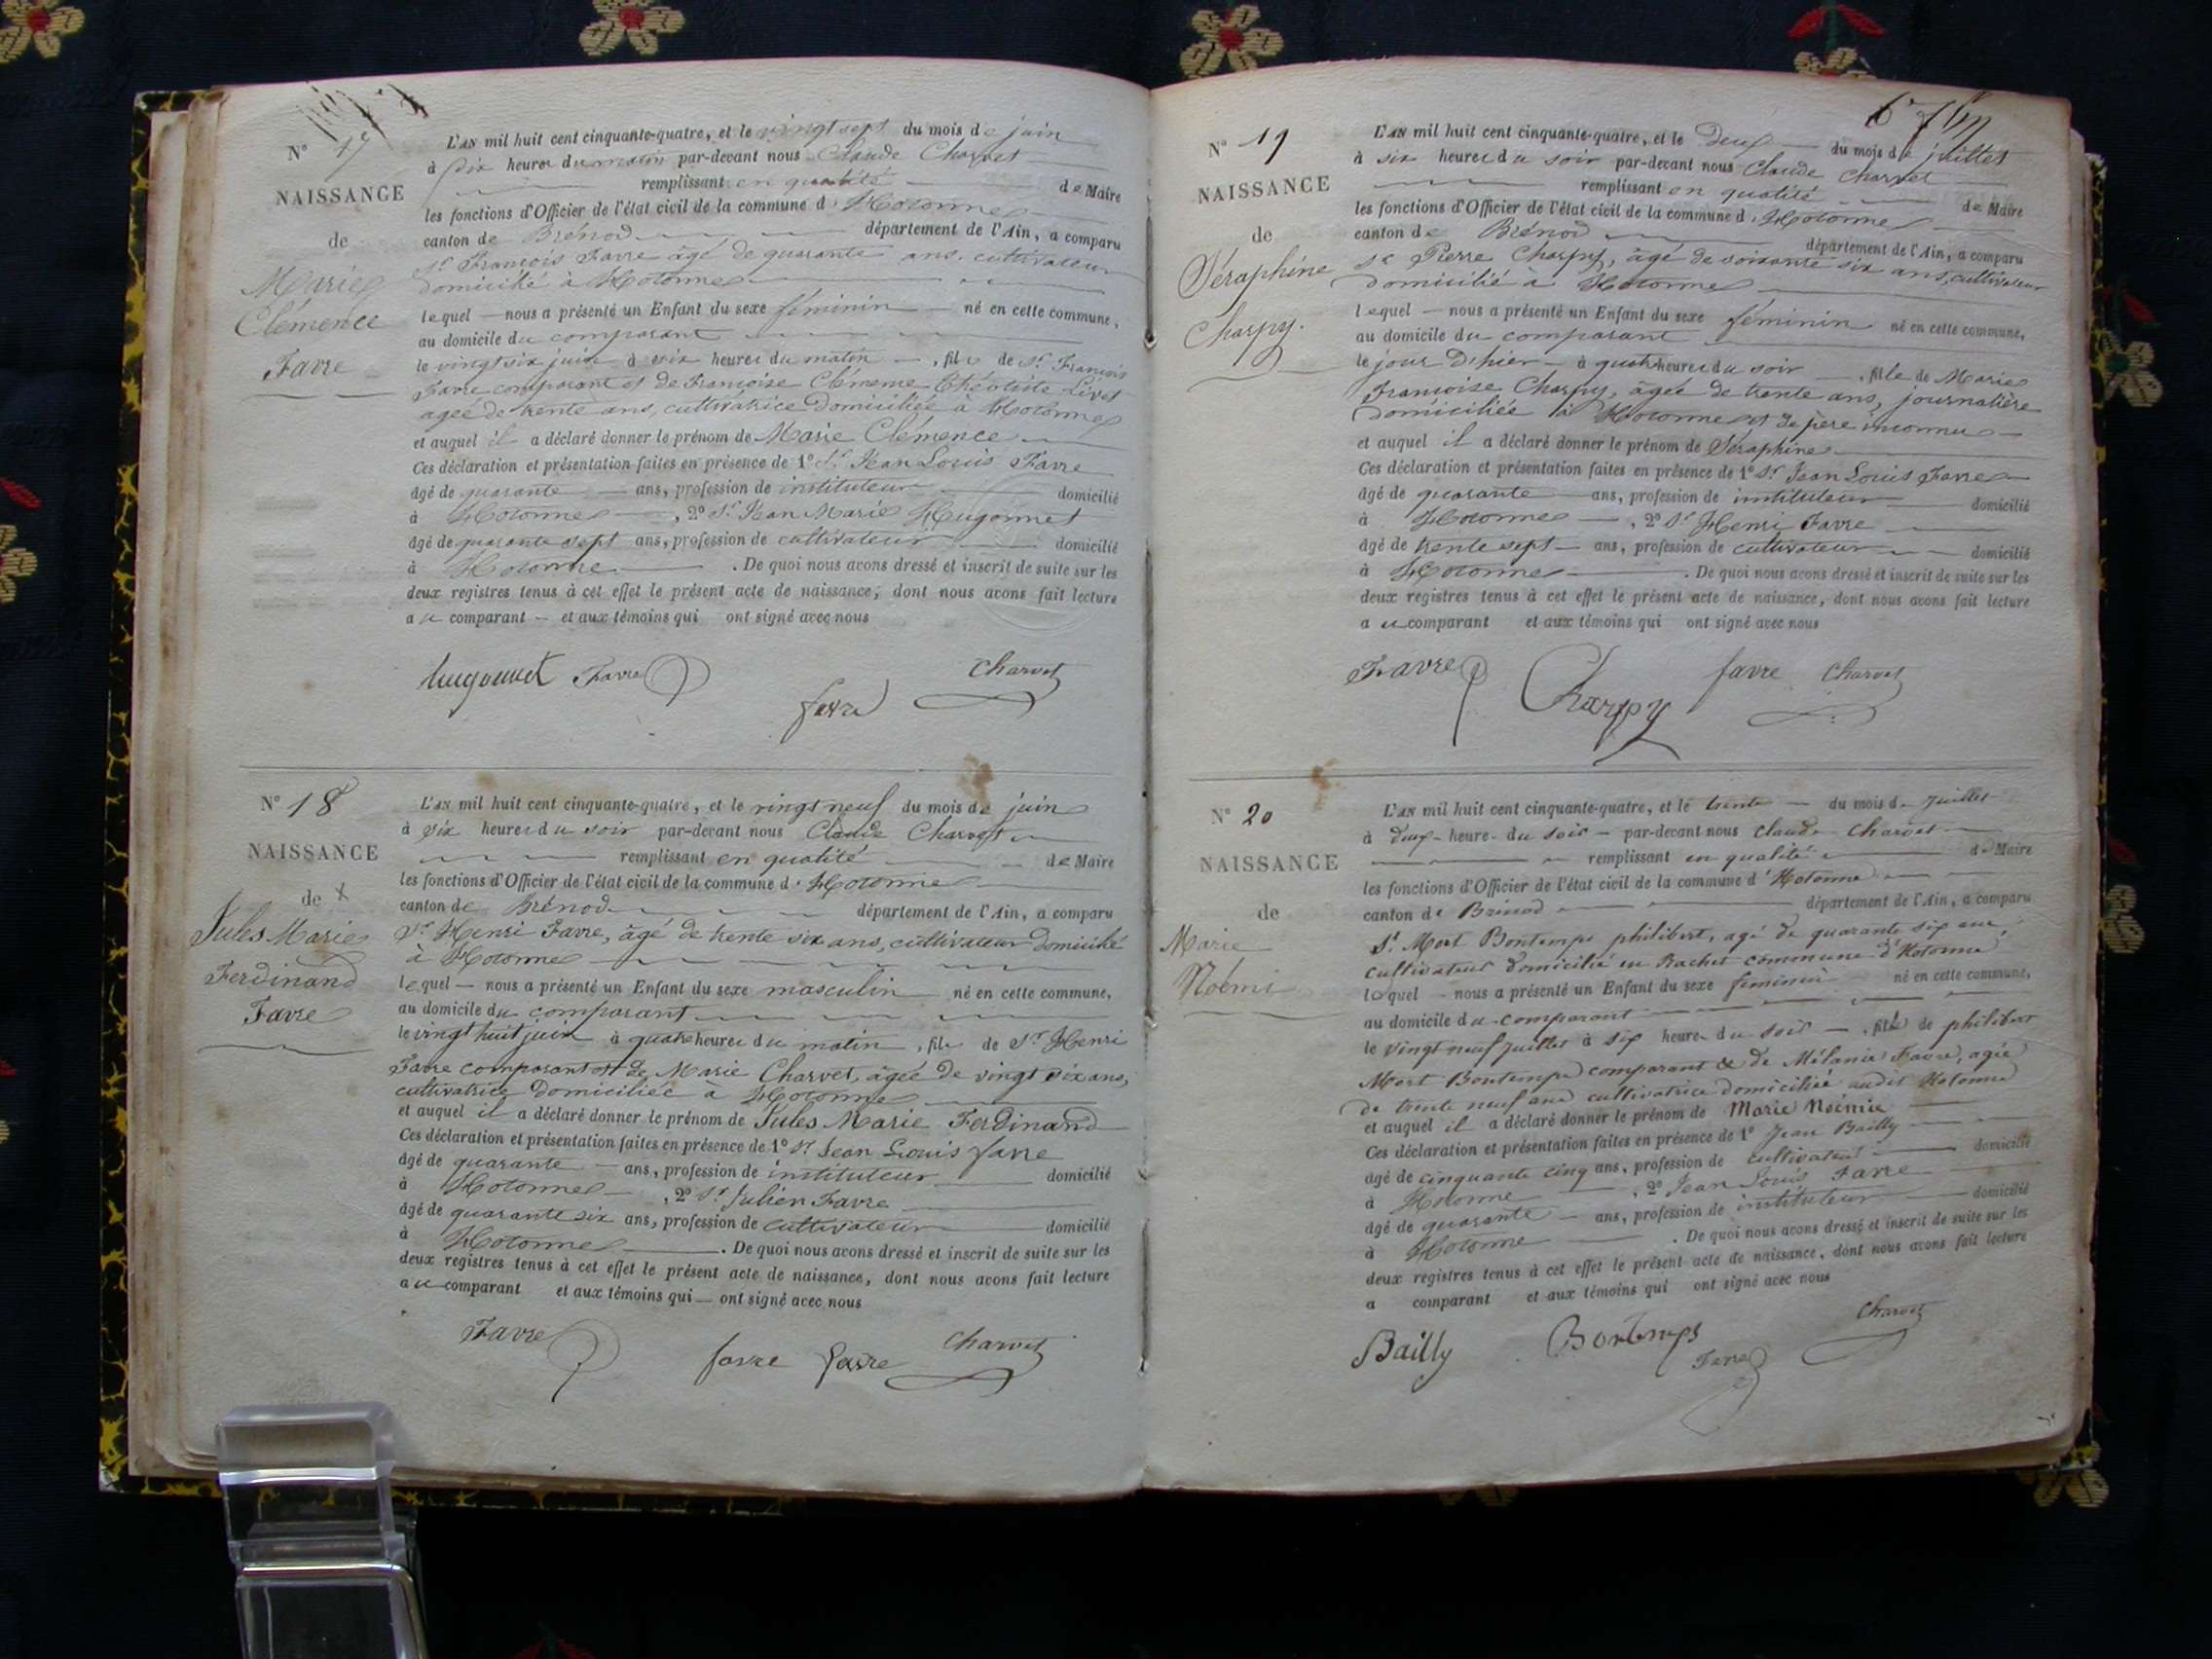 N° 17
NAISSANCE
de
Marie
Clémence
Favre
L'AN mil huit cent cinquante-quatre, et le vingt sept du mois de juin
à six heures du matin par-devant nous Claude Charvet
remplissant en qualité de Maire
les fonctions d'Officier de l'état civil de la commune d'Hotonnes
canton de Brénod département de l'Ain, a comparu
Sr François Favre âgé de quarante ans, cultivateur
domicilié à Hotonnes
lequel nous a présenté un Enfant du sexe féminin né en cette commune,
au domicile du comparant
le vingt six juin à six heures du matin, fille de Sr François
Favre comparant et de Françoise Clémence Livet
agée de trente ans, cultivatrice domiciliée à Hotonnes
et auquel il a déclaré donner le prénom de Marie Clémence
Ces déclaration et présentation faites en présence de 1° Sr Jean Louis Favre
âgé de quarante ans, profession de instituteur domicilié
à Hotonnes, 2° Sr Jean Marie Hugonnet
âgé de quarante sept ans, profession de cultivateur domicilié
à Hotonne. De quoi nous avons dressé et inscrit de suite sur les
deux registres tenus à cet effet le présent acte de naissance, dont nous avons fait lecture
au comparant et aux témoins qui ont signé avec nous
hugonnet Favre favre Charvet
N° 18
NAISSANCE
de
Jules Marie
Ferdinand
Favre
L'AN mil huit cent cinquante-quatre, et le vingt neuf du mois de juin
à six heures du soir par-devant nous Claude Charvet
remplissant en qualité de Maire
les fonctions d'Officier de l'état civil de la commune d'Hotonne
canton de Brénod département de l'Ain, a comparu
Sr Henri Favre, âgé de trente six ans, cultivateur domicilié
à Hotonnes
lequel nous a présenté un Enfant du sexe masculin né en cette commune,
au domicile du comparant
le vingt huit juin à quatre heures du matin, fils de Sr Henri
Favre comparant et de Marie Charvet, âgée de vingt six ans,
cultivatrice domiciliée à Hotonnes
et auquel il a déclaré donner le prénom de Jules Marie Ferdinand
Ces déclaration et présentation faites en présence de 1° Sr Jean Louis favre
âgé de quarante ans, profession de instituteur domicilié
à Hotonnes, 2° Sr Julien Favre
âgé de quarante six ans, profession de cultivateur domicilié
à Hotonnes. De quoi nous avons dressé et inscrit de suite sur les
deux registres tenus à cet effet le présent acte de naissance, dont nous avons fait lecture
au comparant et aux témoins qui ont signé avec nous
Favre favre favre Charvet
N° 19
NAISSANCE
de
Séraphine
Charpy.
L'AN mil huit cent cinquante-quatre, et le deux du mois de juillet
à six heures du soir par-devant nous Claude Charvet
remplissant en qualité de Maire
les fonctions d'Officier de l'état civil de la commune d'Hotonnes
canton de Brénod département de l'Ain, a comparu
Sr Pierre Charpy, âgé de soixante six ans, cultivateur
domicilié à Hotonnes
lequel nous a présenté un Enfant du sexe féminin né en cette commune,
au domicile du comparant
le jour d'hier à quatre heures du soir, fille de Marie
Françoise Charpy, âgée de trente ans, journalière
domiciliée à Hotonnes et de père inconnu
et auquel il a déclaré donner le prénom de Séraphine
Ces déclaration et présentation faites en présence de 1° Sr Jean Louis Favre
âgé de quarante ans, profession de instituteur domicilié
à Hotonnes, 2° Sr Henri Favre
âgé de trente sept ans, profession de cultivateur domicilié
à Hotonnes. De quoi nous avons dressé et inscrit de suite sur les
deux registres tenus à cet effet le présent acte de naissance, dont nous avons fait lecture
au comparant et aux témoins qui ont signé avec nous
Favre Charpy favre Charvet
N° 20
NAISSANCE
de
Marie
Noémi
L'AN mil huit cent cinquante-quatre, et le trente du mois de Juillet
à deux heure du soir par-devant nous Claude Charvet
remplissant en qualité de Maire
les fonctions d'Officier de l'état civil de la commune d'Hotonne
canton de Brénod département de l'Ain, a comparu
Sr Mort Bontemps philibert, agé de quarante six ans,
cultivateur domicilié en Rachet commune d'Hotonne
lequel nous a présenté un Enfant du sexe féminin né en cette commune,
au domicile du comparant
le vingt neuf Juillet à six heure du soir, fille de philibert
Mort Bontemps comparant & de Mélanie Favre, agée
de trente neuf ans cultivatrice domiciliée audit Hotonne
et auquel il a déclaré donner le prénom de Marie Noémie
Ces déclaration et présentation faites en présence de 1° Jean Bailly
âgé de cinquante cinq ans, profession de cultivateur domicilié
à Hotonne, 2° Jean Louis Favre
âgé de quarante ans, profession de instituteur domicilié
à Hotonne. De quoi nous avons dressé et inscrit de suite sur les
deux registres tenus à cet effet le présent acte de naissance, dont nous avons fait lecture
a comparant et aux témoins qui ont signé avec nous
Bailly Bontemps Favre Charvet